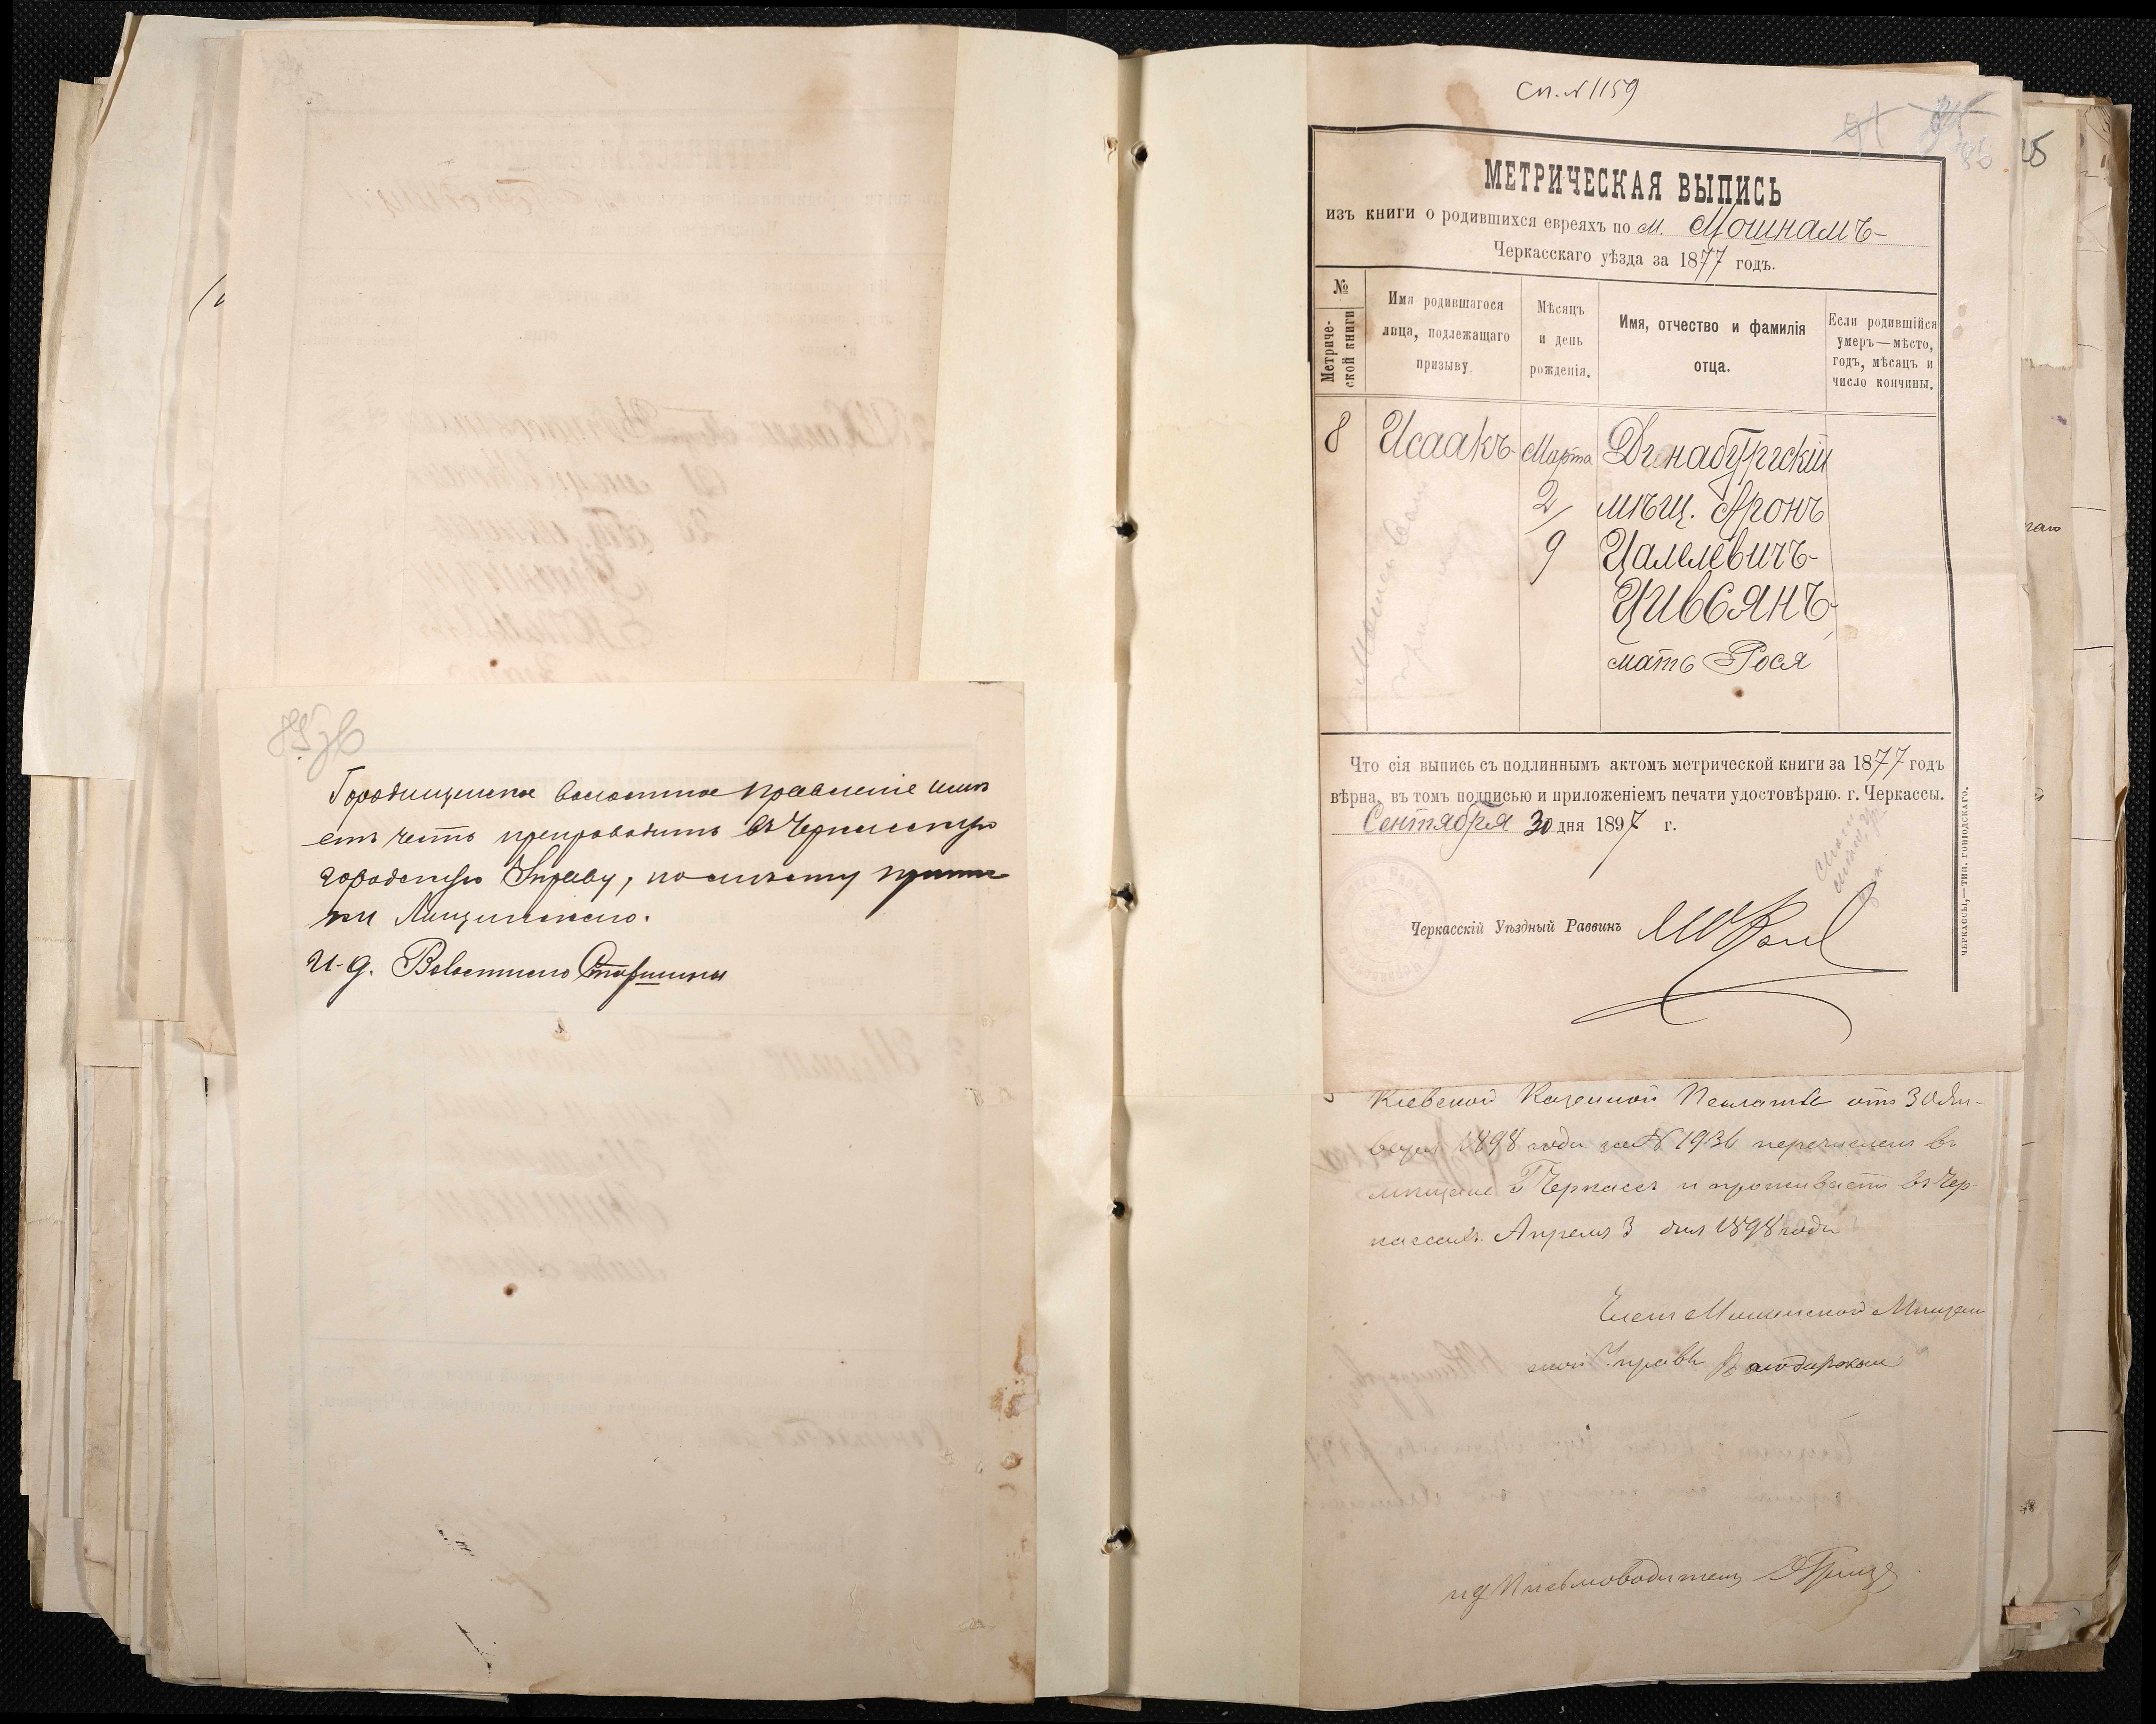 Городищенское волостное правление име
етъ честь препроводить въ Черкасскую
городскую Управу, по месту припи
ки Лищинского.
И. д. Волостного Старшины
Сп. № 1159
91 86
25
МЕТРИЧЕСКАЯ ВЫПИСЬ
изъ книги о родившихся евреяхъ по м. Мошнамъ
Черкасскаго уѣзда за 1877 годъ.
№ Метриче-ской книги
Имя родившагося лица, подлежащаго призыву.
Мѣсяцъ и день рожденія.
Имя, отчество и фамилія отца.
Если родившійся умеръ—мѣсто, годъ, мѣсяцъ и число кончины.
8 Исаакъ Марта Динабургскій
2/ мѣщ. Аронъ
9 Цалелевичъ
Цивсянъ
мать Рося
Что сія выпись съ подлиннымъ актомъ метрической книги за 1877 годъ
вѣрна, въ томъ подписью и приложеніемъ печати удостовѣряю. г. Черкассы.
Сентября 30 дня 1897 г.
Черкасскій Уѣздный Раввинъ
ЧЕРКАССЫ,—ТИП. ГОНІОДСКАГО.
Кіевской Казенной Палаты отъ 30 Ян-
варя 1898 года за № 1936 перечисленъ въ
мещане г Черкассъ и проживаетъ въ Чер-
кассахъ. Апреля 3 дня 1898 года
Членъ Мошенской Мещан
ской Управы
ид Письмоводителя